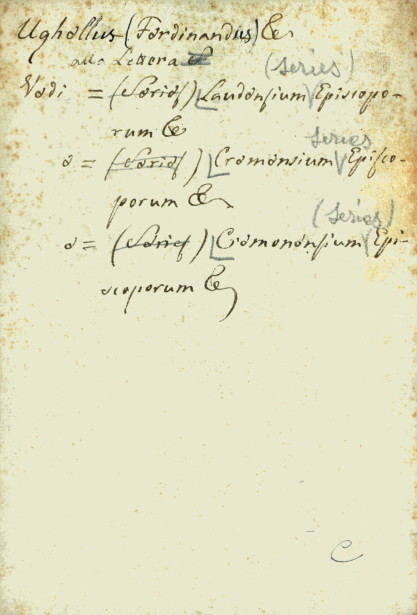 Ughellus (Ferdinandus) &c
alla Lettera
(Series)
Vedi = (Series) Laudensium Episcopo-
rum &c
Series
e = (Series) Cremensium Episco-
porum &c
(Series)
e = (Series) Cremonensium Epi-
scoporum &c
C